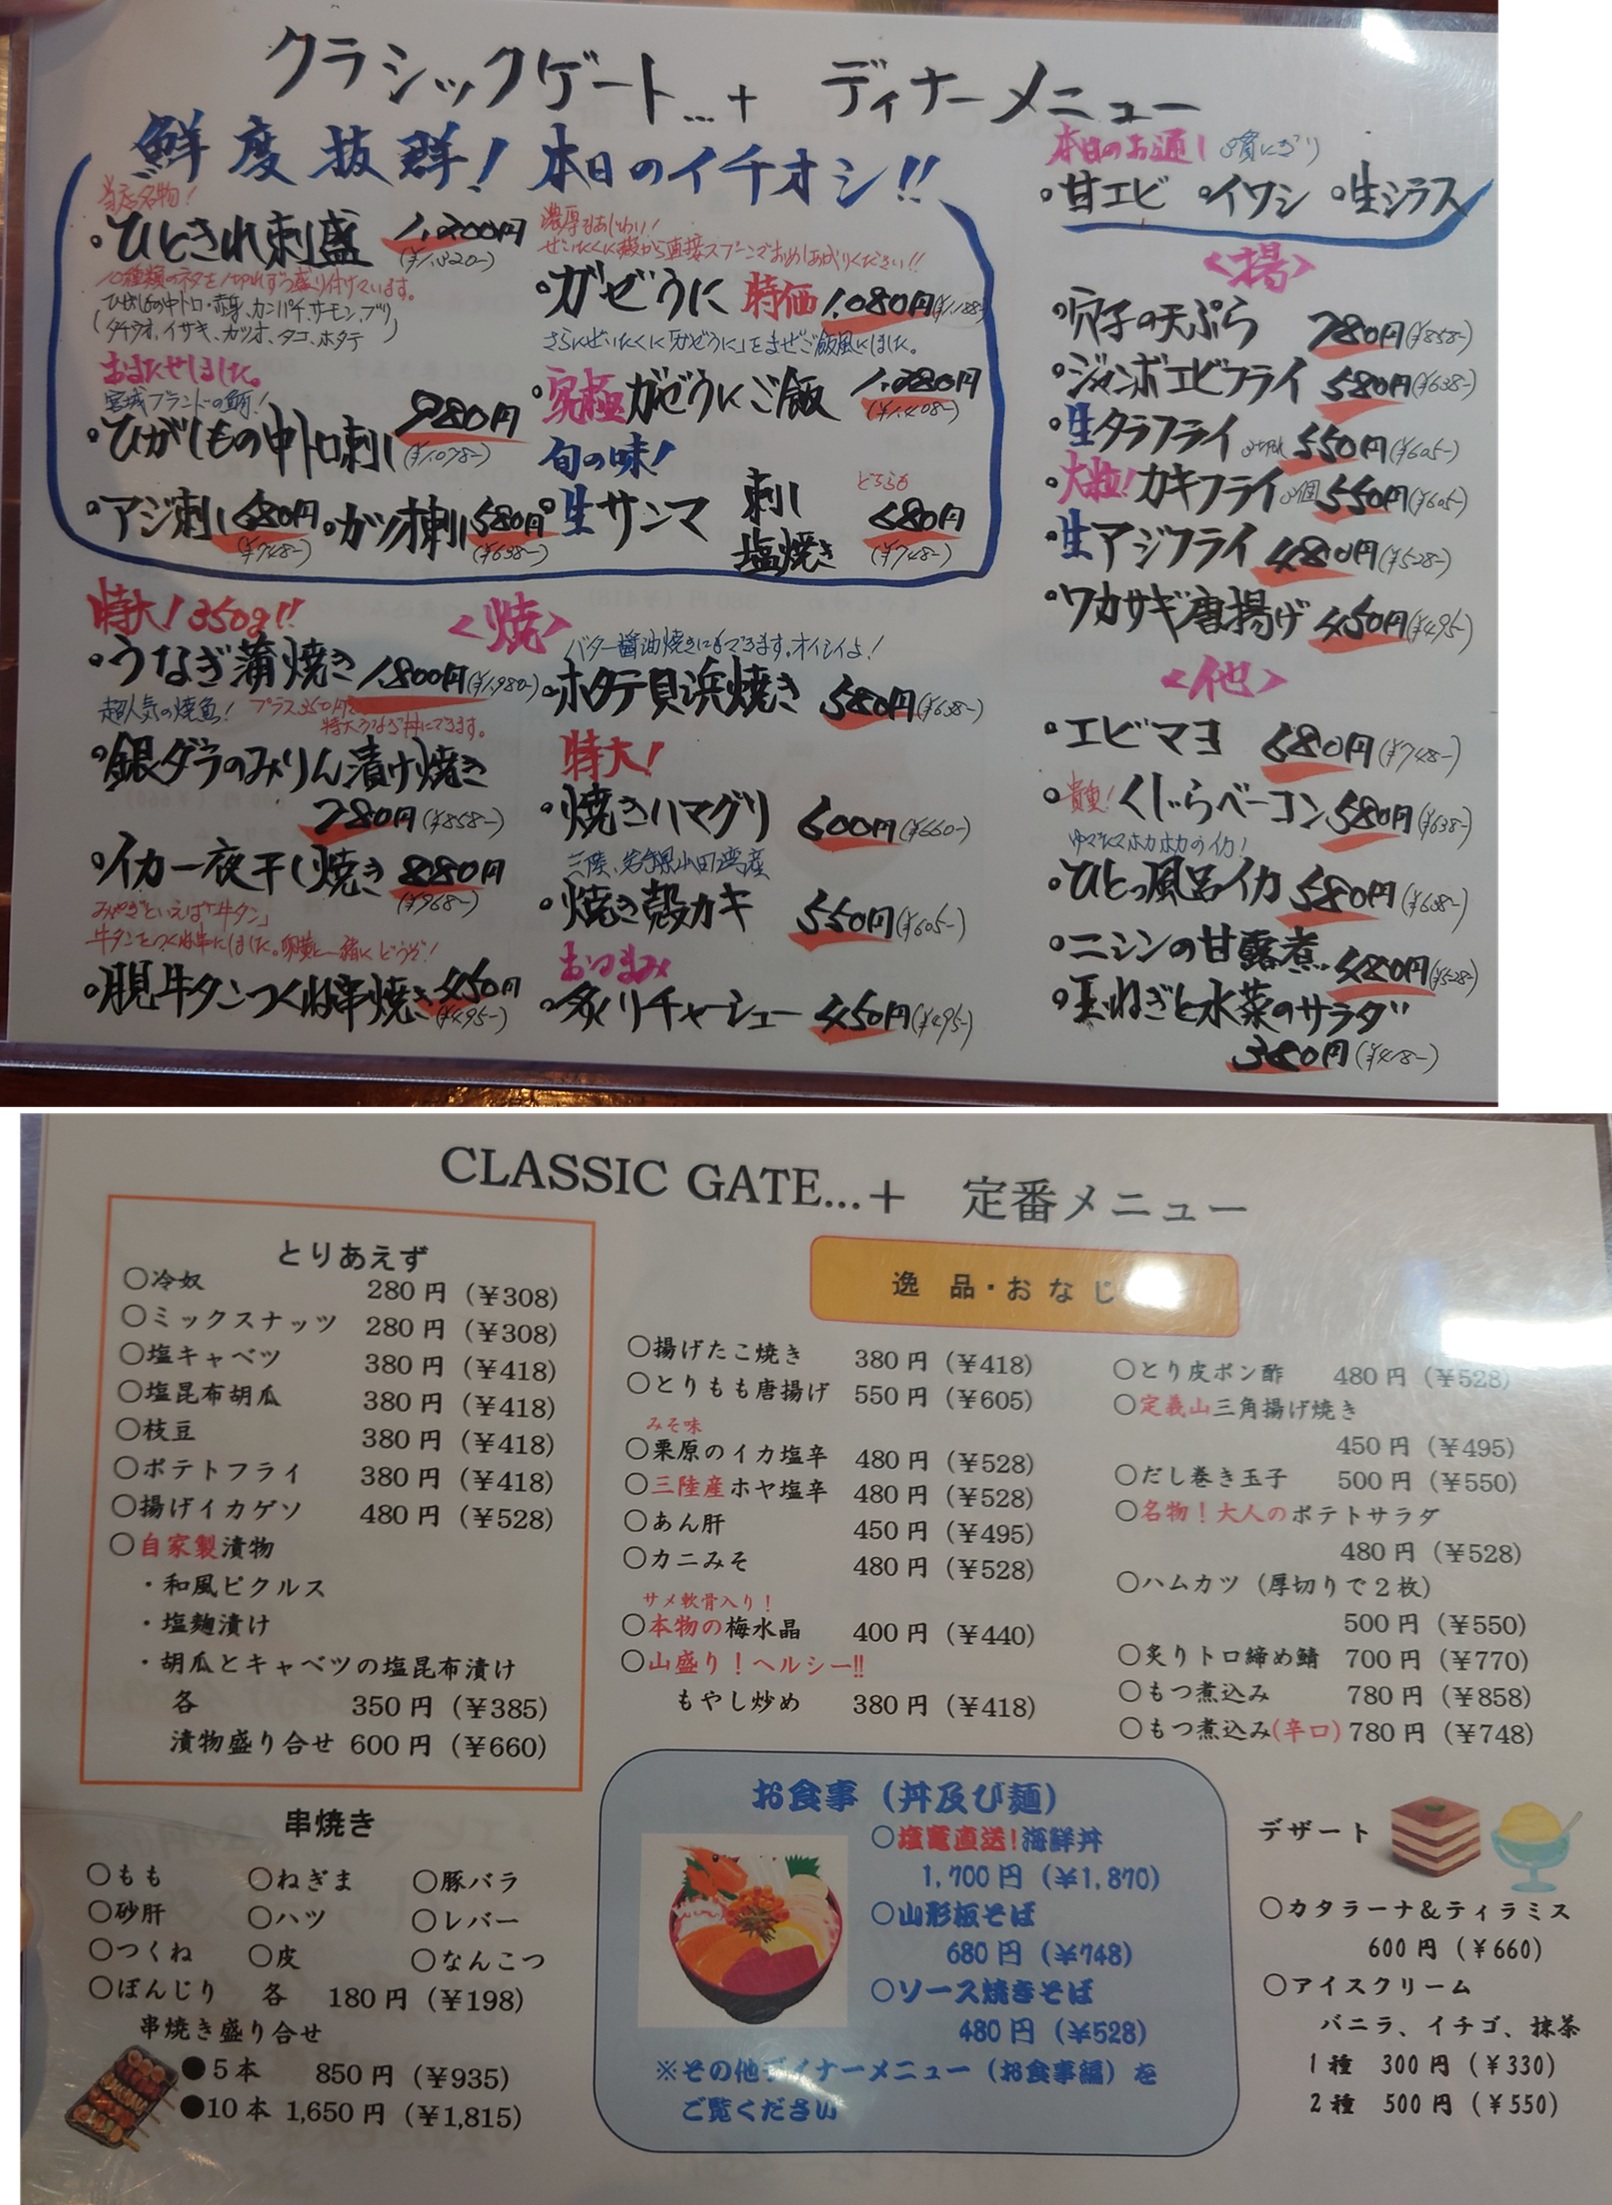 クラシックゲート…+ ディナーメニュー
鮮度抜群！本日のイチオシ!!
当店名物！
・ひときれ刺盛 1,200円
(¥1,320-)
10種類のネタを1切れずつ盛り付けています。
(ひがしもの中トロ・赤身、カンパチ、サーモン、ブリ
タチウオ、イサキ、カツオ、タコ、ホタテ)
おまたせしました。
宮城ブランドの鮪！
・ひがしもの中トロ刺し 980円
(¥1,078-)
・アジ刺し 680円
(¥748-)
・カツオ刺し 580円
(¥638-)
濃厚なあじわい！
ぜいたくに殻から直接スプーンでおめしあがりください!!
・ガぜうに 特価 1,080円(¥1,188-)
さらにぜいたくに「ガぜうに」をまぜご飯風にしました。
・究極ガぜうにご飯 1,280円
(¥1,408-)
旬の味！
・生サンマ 刺し 塩焼き どちらも 680円
(¥748-)
本日のお通し
・甘エビ ・イワシ ・生シラス
<揚>
・穴子の天ぷら 780円(¥858-)
・ジャンボエビフライ 580円(¥638-)
・生タラフライ 550円(¥605-)
・大粒！カキフライ 3個 550円(¥605-)
・生アジフライ 480円(¥528-)
・ワカサギ唐揚げ 450円(¥495-)
<他>
・エビマヨ 680円(¥748-)
・貴重！くじらベーコン 580円(¥638-)
ゆでたてホカホカのイカ！
・ひとっ風呂イカ 580円(¥638-)
・ニシンの甘露煮 480円(¥528-)
・玉ねぎと水菜のサラダ
380円(¥418-)
<焼>
特大！350g!!
・うなぎ蒲焼き 1,800円(¥1,980-)
超人気の焼魚！
プラス350円で
特大うなぎ丼にできます。
・銀ダラのみりん漬け焼き
780円(¥858-)
・イカ一夜干し焼き 880円
(¥968-)
みやぎといえば「牛タン」
牛タンをつくね串にしました。卵黄と一緒にどうぞ！
・月見牛タンつくね串焼き 450円
(¥495-)
バター醤油焼きにもできます。オイシイよ！
・ホタテ貝浜焼き 580円(¥638-)
特大！
・焼きハマグリ 600円(¥660-)
三陸、岩手県山田湾産
・焼き殻カキ 550円(¥605-)
おつまみ
・炙りチャーシュー 450円(¥495-)
CLASSIC GATE…＋ 定番メニュー
とりあえず
〇冷奴 280円（¥308）
〇ミックスナッツ 280円（¥308）
〇塩キャベツ 380円（¥418）
〇塩昆布胡瓜 380円（¥418）
〇枝豆 380円（¥418）
〇ポテトフライ 380円（¥418）
〇揚げイカゲソ 480円（¥528）
〇自家製漬物
・和風ピクルス
・塩麹漬け
・胡瓜とキャベツの塩昆布漬け
各 350円（¥385）
漬物盛り合せ 600円（¥660）
逸 品・お な じ
〇揚げたこ焼き 380円（¥418）
〇とりもも唐揚げ 550円（¥605）
みそ味
〇栗原のイカ塩辛 480円（¥528）
〇三陸産ホヤ塩辛 480円（¥528）
〇あん肝 450円（¥495）
〇カニみそ 480円（¥528）
サメ軟骨入り！
〇本物の梅水晶 400円（¥440）
〇山盛り！ヘルシー!!
もやし炒め 380円（¥418）
〇とり皮ポン酢 480円（¥528）
〇定義山三角揚げ焼き
450円（¥495）
〇だし巻き玉子 500円（¥550）
〇名物！大人のポテトサラダ
480円（¥528）
〇ハムカツ（厚切りで２枚）
500円（¥550）
〇炙りトロ締め鯖 700円（¥770）
〇もつ煮込み 780円（¥858）
〇もつ煮込み(辛口) 780円（¥748）
串焼き
〇もも 〇ねぎま 〇豚バラ
〇砂肝 〇ハツ 〇レバー
〇つくね 〇皮 〇なんこつ
〇ぼんじり 各 180円（¥198）
串焼き盛り合せ
●５本 850円（¥935）
●10本 1,650円（¥1,815）
お食事（丼及び麺）
〇塩竈直送！海鮮丼
1,700円（¥1,870）
〇山形板そば
680円（¥748）
〇ソース焼きそば
480円（¥528）
※その他ディナーメニュー（お食事編）を
ご覧ください
デザート
〇カタラーナ＆ティラミス
600円（¥660）
〇アイスクリーム
バニラ、イチゴ、抹茶
1種 300円（¥330）
2種 500円（¥550）